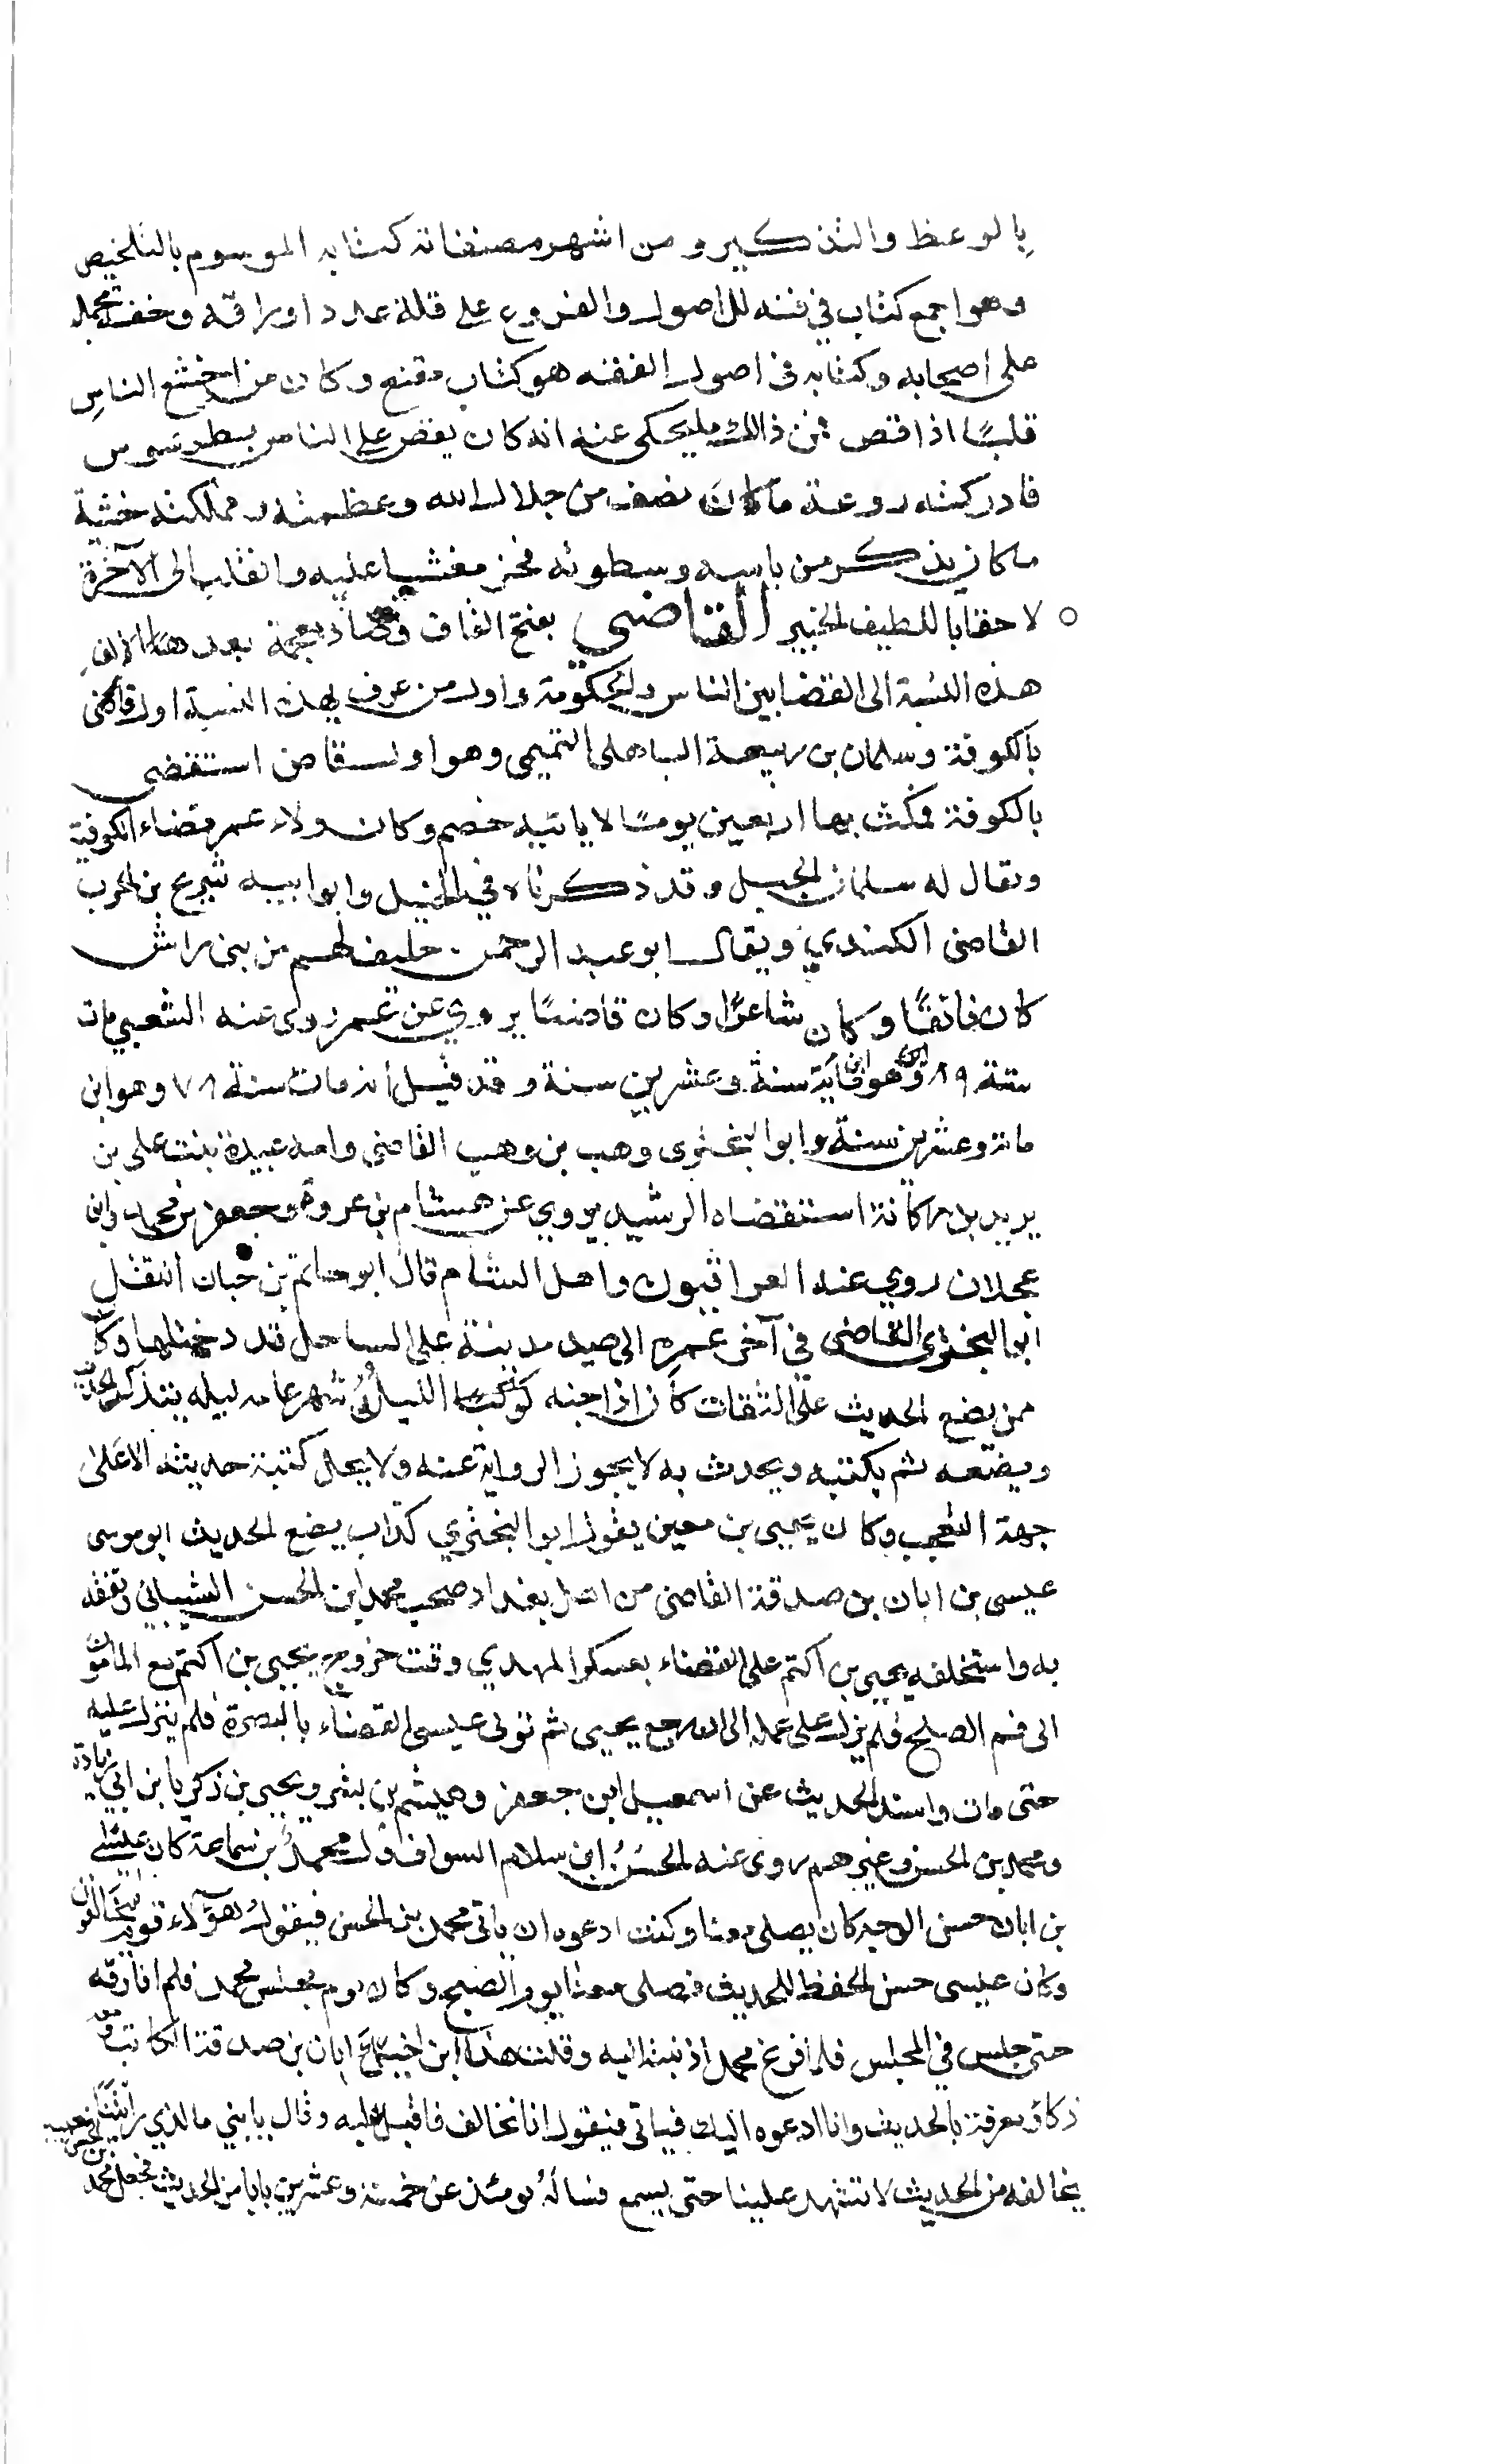 بالوعظ والتذكير ومن اشهر مصنفاته كتابه الموسوم بالتلخيص
وهو اجمع كتاب في فنه للاصول والفروع على قلة عدد اوراقه وخفة محمله
على اصحابه وكتابه في اصول الفقه هو كتاب مقنع وكان من اخشع الناس
قلبًا اذا قص فمن ذالك ما يحكى عنه انه كان يقص على الناس بطرسوس
فادركته روعة ما كان يصف من جلال الله وعظمته و مملكته خشية
ما كان يذكر من باسه وسطوته فخر مغشيا عليه وانقلب الى الآخرة
لاحقا باللطيف الخبير القاضي بفتح القاف وضاد معجمة بعد هذا الالف
هذه النسبة الى القضا بين الناس والحكومة واول من عرف بهذه النسبة اول قاضي
بالكوفة وسلمان بن ربيعة الباهلى التميمى وهو اول قاض استقضى
بالكوفة فمكث بها اربعين يومًا لا ياتيه خصم وكان ولاه عمر قضاء الكوفة
ويقال له سلمان الخيل وقد ذكرناه في الخيل وابو اميه شريح بن الحرب
القاضى الكندي ويقال ابو عبد الرحمن حليف لهم من بني رائش
كان فائقًا وكان شاعرًا وكان قاضيًا يروي عن عمر روى عنه الشعبي مات
سنة ٨٩ وهو ابن مائة سنة وعشرين سنة وقد قيل أنه مات سنة ٧٨ وهو ابن
مائة وعشرين سنة وابو البختري وهب بن وهب القاضي وامه عبيدة بنت على بن
يريد بن ركانة استقضاه الرشيد يروي عن هشام بن عروة وجعفر بن محمد وابن
عجلان روي عنه العراقيون واهل الشام قال ابو حاتم بن حبان انتقل
ابو البختري القاضي في آخر عمره الى صيد مدينة على الساحل قد دخلتها وكان
ممن يضع الحديث على الثقات كان اذا جنه الليل شهر عامه ليله يتذكر الحديث
ويضعه ثم يكتبه ويحدث به لا يجوز الرواية عنه ولا يحل كتبة حديثه الا على
جهة التعجب وكان يحيى بن معين يقول ابو البختري كذاب يضع الحديث ابو موسى
عيسى بن ابان بن صدقة القاضى من اهل بغداد صحب محمد ابن الحسن الشيباني وتفقه
به واستخلفه يحيى بن اكثم على القضاء بعسكر المهدي وقت خروج يحيى بن اكثم مع المامون
الى فم الصلح فلم يزل على عمله الى ان رجع يحيى ثم تولى عيسى القضاء بالبصرة فلم يزل عليه
حتى مات واسند الحديث عن اسمعيل ابن جعفر وهيثم بن بشر ويحيى بن زكريا بن ابي زيادة
ومحمد بن الحسن وغيرهم روى عنه الحسن ابن سلام السواق قال محمد بن سماعة كان عيسى
بن ابان حسن الوجه كان يصلى معنا وكنت ادعوه ان ياتى محمد بن الحسن فيقول هؤلاء قوم يخالفون
وكان عيسى حسن الحفظ للحديث فصلى معنا يوم الصبح وكان يوم مجلس محمد فلم افارقه
حتى جلس في المجلس فلما فرغ محمد اذنيته اليه وقلت هذا ابن اخيك ابان بن صدقة الكاتب ومعه
ذكاؤ ومعرفة بالحديث وانا ادعوه اليك فياتى فيقول انا نخالف فاقبل عليه وقال يا بني ما الذي رايتنا
يخالفه من الحديث لا تشهد علينا حتى يسمع فسأله يومئذ عن خمسة وعشرين بابا من الحديث فجعل محمد